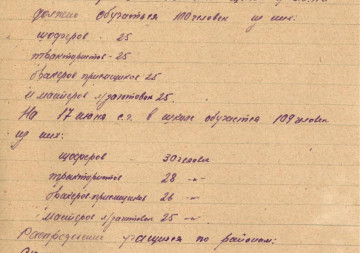 должны обучаться 110 человек из них:
шоферов - 25
трактористов - 25
бракеров приемщиков 25
и мастеров л/заготовок 25.
На 17 июня с.г. в школе обучается 109 человек
из них:
шоферов 30 человек
трактористов 28 -"-
бракеров-приемщиков 26 -"-
мастеров л/заготовок 25 -"-
Распределение учащихся по районам: